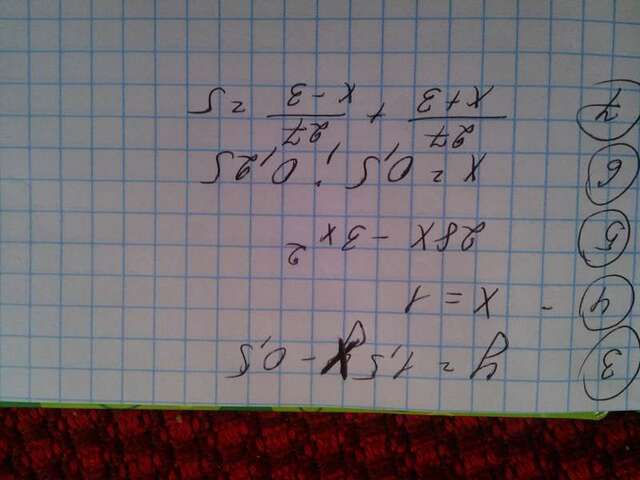 3 y = 1,5x - 0,5
4 - x = 1
5 28x - 3x²
6 x = 0,5 ; 0,25
7 27/(x+3) + 27/(x-3) = 5